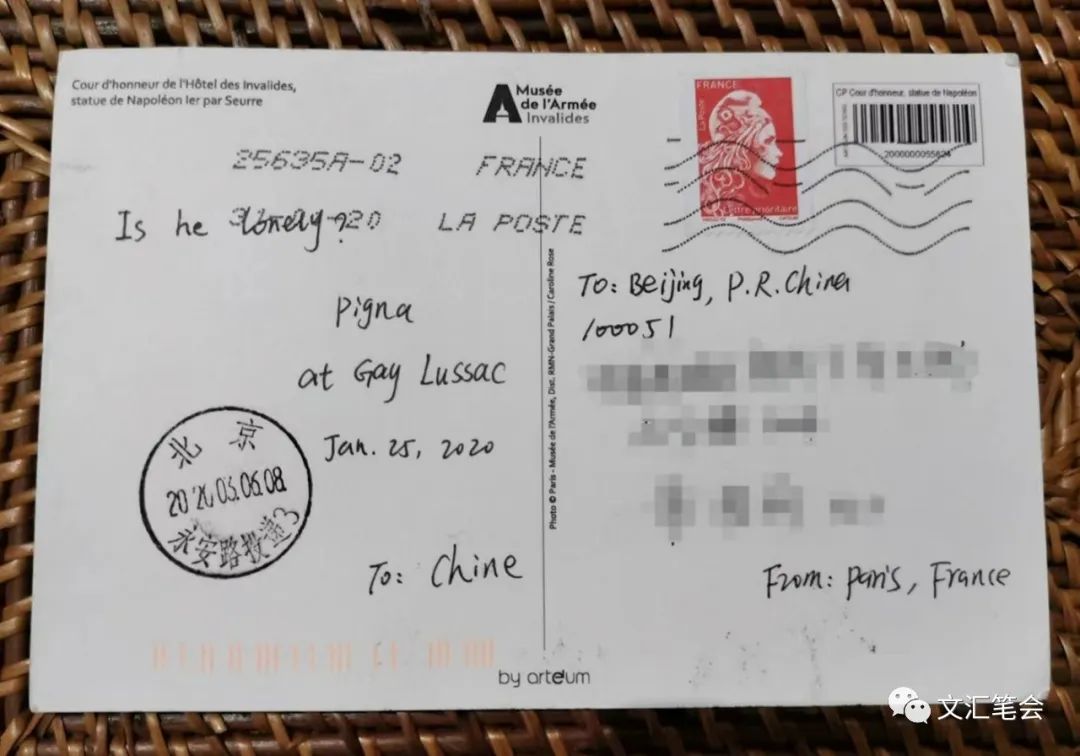 Cour d'honneur de l'Hôtel des Invalides,
statue de Napoléon Ier par Seurre
Musée
de l'Armée
Invalides
FRANCE
La Poste
Lettre prioritaire
CP Cour d'honneur, statue de Napoléon
25635A-02 FRANCE
LA POSTE
Is he lonely?
Pigna
at Gay Lussac
Jan. 25, 2020
To: Chine
北京
永安路投递3
Photo © Paris - Musée de l'Armée, Dist. RMN-Grand Palais / Caroline Rose
To: Beijing, P.R.China
100051
From: Paris, France
by arteum
文汇笔会